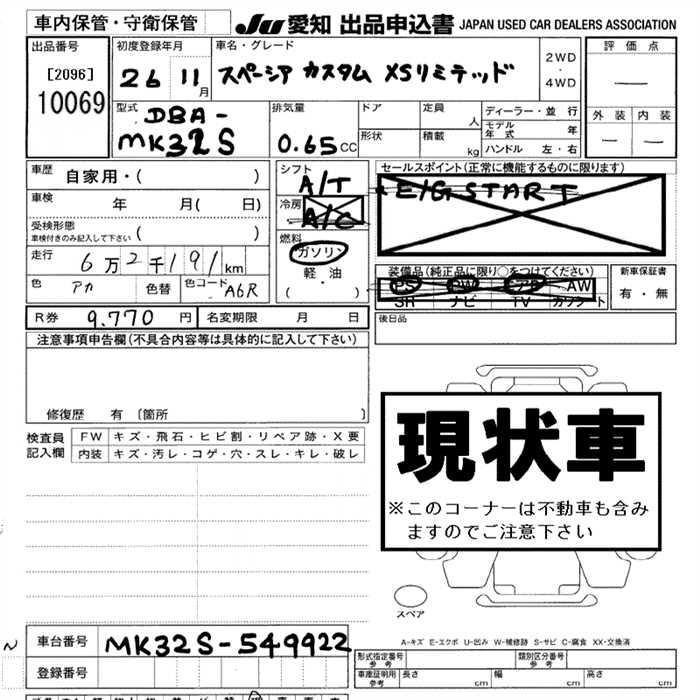 車内保管・守衛保管 JU 愛知 出品申込書 JAPAN USED CAR DEALERS ASSOCIATION
出品番号 初度登録年月 車名・グレード 評価点
[2096] 26 11月 スペーシア カスタム XSリミテッド 2WD・4WD
10069 外装 内装
型式 DBA- 排気量 ドア 定員 人 ディーラー・並行
MK32S 0.65CC 形状 積載 kg モデル年式 年
ハンドル 左・右
車歴 自家用・( )
車検 年 月( 日)
受検形態 ( )
車検付きのみ記入して下さい
走行 6万2千191km
色 アカ 色替 色コード A6R
シフト A/T
冷房 A/C
燃料 ガソリン
軽・油
( )
セールスポイント(正常に機能するものに限ります)
E/G START
装備品(純正品に限り○をつけてください) 新車保証書
PS PW エアB AW 有・無
SR ナビ TV カワシート
R券 9.770円 名変期限 月 日 後日品
注意事項申告欄(不具合内容等は具体的に記入して下さい)
修復歴 有〔箇所 〕
検査員記入欄 FW キズ・飛石・ヒビ割・リペア跡・X要
内装 キズ・汚レ・コゲ・穴・スレ・キレ・破レ
現状車
※このコーナーは不動車も含み
ますのでご注意下さい
スペア
A-キズ E-エクボ U-凹み W-補修跡 S-サビ C-腐食 XX-交換済
車台番号 MK32S-549922
登録番号
形式指定番号 参考 類別区分番号 参考
車庫証明用 参考 長さ cm 幅 cm 高さ cm